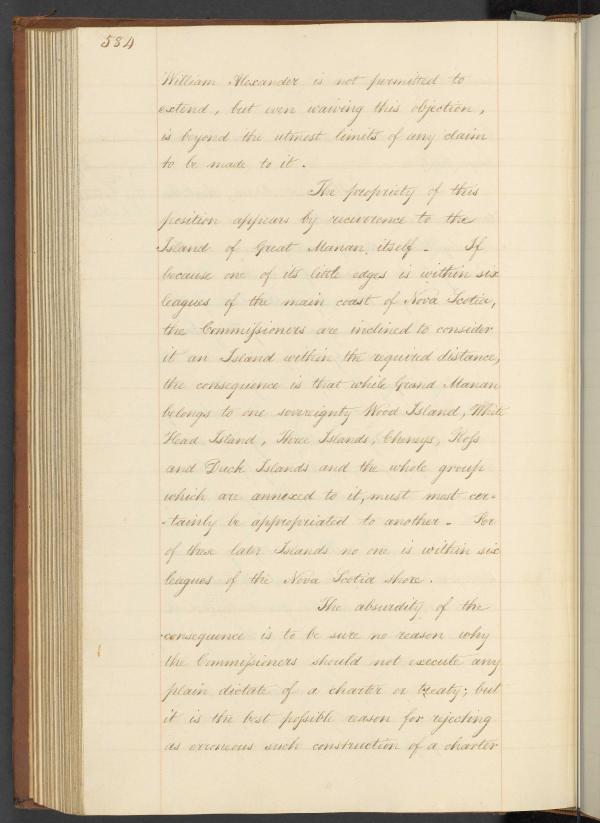 534
William Alexander is not permitted to
extend, but even waiving this objection,
is beyond the utmost limits of any claim
to be made to it.
The propriety of this
position appears by recurrence to the
Island of Great Manan itself - If
because one of its little edges is within six
leagues of the main coast of Nova Scotia,
the Commissioners are inclined to consider
it an Island within the required distance,
the consequence is that while Grand Manan
belongs to one sovereignty Wood Island, White
Head Island, Three Islands, Cheneys, Ross
and Duck Islands and the whole group
which are annexed to it, must most cer-
-tainly be appropriated to another - For
of these later Islands no one is within six
leagues of the Nova Scotia shore.
The absurdity of the
consequence is to be sure no reason why
the Commissioners should not execute any
plain dictate of a charter or treaty; but
it is the best possible reason for rejecting
as erroneous such construction of a charter